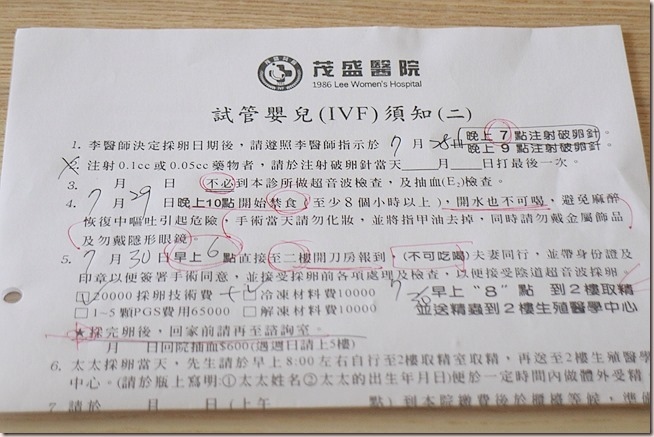 茂盛醫院
1986 Lee Women's Hospital
試管嬰兒(IVF)須知(二)
1. 李醫師決定採卵日期後,請遵照李醫師指示於 7 月 28日 晚上 7 點注射破卵針。
晚上 9 點注射破卵針。
2. 注射0.1cc或0.05cc藥物者,請於注射破卵針當天___月___日打最後一次。
3. 月 日 (不必)到本診所做超音波檢查,及抽血(E₂)檢查。
4. 7 月 29 日晚上10點開始禁食(至少8個小時以上),開水也不可喝,避免麻醉
恢復中嘔吐引起危險,手術當天請勿化妝,並將指甲油去掉,同時請勿戴金屬飾品
及勿戴隱形眼鏡。
5. 7 月 30 日早上 6 點直接至二樓開刀房報到,(不可吃喝)夫妻同行,並帶身份證及
印章以便簽署手術同意,並接受採卵前各項處理及檢查,以便接受陰道超音波採卵。
☑20000採卵技術費 □冷凍材料費10000
7/30 早上“8”點 到2樓取精
□1~5顆PGS費用65000 □冷凍材料費10000
並送精蟲到2樓生殖醫學中心
★採完卵後,回家前請再至諮詢室。
月 日回院抽血$600(週日請上5樓)
6. 太太採卵當天,先生請於早上8:00左右自行至2樓取精室取精,再送至2樓生殖醫學
中心。(請於瓶上寫明:①太太姓名②太太的出生年月日)便於一定時間內做體外受精
7. 請於 月 日(上午 點)到本院繳費後於櫃檯等候,準備